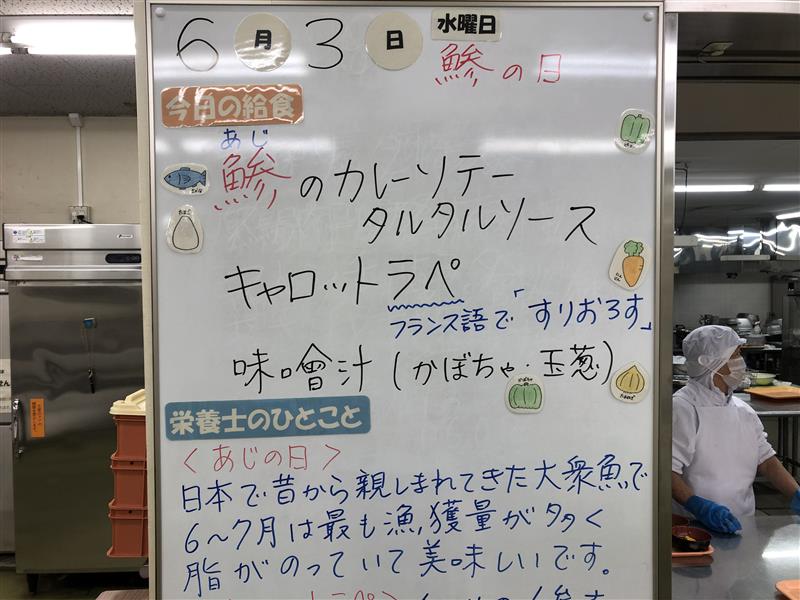 6月3日 水曜日
鯵の日
今日の給食
あじ
鯵のカレーソテー
タルタルソース
キャロットラペ
フランス語で「すりおろす」
味噌汁(かぼちゃ・玉葱)
栄養士のひとこと
<あじの日>
日本で昔から親しまれてきた大衆魚で
6〜7月は最も漁獲量が多く
脂がのっていて美味しいです。